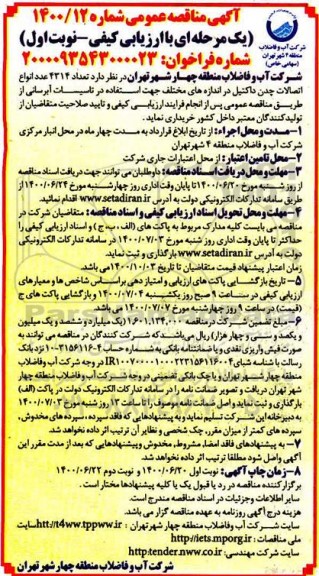 آگهی مناقصه عمومی شماره ۱۴۰۰/۱۲
(یک مرحله‌ای با ارزیابی کیفی-نوبت اول)
شماره فراخوان: ۲۰۰۰۰۹۳۵۴۳۰۰۰۰۲۳
شرکت آب و فاضلاب
منطقه ۴ شهر تهران
(سهامی خاص)
شرکت آب و فاضلاب منطقه چهار شهر تهران در نظر دارد تعداد ۴۳۱۴ عدد انواع
اتصالات چدن داکتیل در اندازه های مختلف جهت استفاده در تاسیسات آبرسانی از
طریق مناقصه عمومی پس از انجام فرایند ارزیابی کیفی و تایید صلاحیت متقاضیان از
تولیدکنندگان معتبر داخل کشور خریداری نماید.
۱-مدت و محل اجراء: از تاریخ ابلاغ قرارداد به مدت چهار ماه در محل انبار مرکزی
شرکت آب و فاضلاب منطقه ۴ شهر تهران
۲-محل تامین اعتبار: از محل اعتبارات جاری شرکت
۳-مهلت و محل دریافت اسناد مناقصه: داوطلبان می توانند جهت دریافت اسناد مناقصه
از روز شنبه مورخ ۱۴۰۰/۰۶/۲۰ تا پایان وقت اداری روز چهارشنبه مورخ ۱۴۰۰/۰۶/۲۴ از
طریق سامانه تدارکات الکترونیکی دولت به آدرس www.setadiran.ir اقدام نمائید.
۴-مهلت و محل تحویل اسناد ارزیابی کیفی و اسناد مناقصه: متقاضیان شرکت در
مناقصه می بایست کلیه مدارک مربوط به پاکت های (الف، ب، ج) و اسناد ارزیابی کیفی را
حداکثر تا پایان وقت اداری روز شنبه مورخ ۱۴۰۰/۰۷/۰۳ در سامانه تدارکات الکترونیکی
دولت به آدرس www.setadiran.ir بارگذاری و ثبت نماید.
زمان اعتبار پیشنهاد قیمت متقاضیان تا تاریخ ۱۴۰۰/۱۰/۰۳ می باشد.
۵-تاریخ بازگشایی پاکت های ارزیابی و امتیازدهی براساس شاخص ها و معیارهای
ارزیابی کیفی در ساعت ۹ صبح روز یکشنبه ۱۴۰۰/۰۷/۰۴ و بازگشایی پاکت های ج
(قیمت) در ساعت ۹ روز چهارشنبه مورخ ۱۴۰۰/۰۷/۰۷ می باشد.
۶-مبلغ تضمین شرکت در مناقصه ۱,۶۰۱,۱۳۴,۰۰۰ (یک میلیارد و ششصد و یک میلیون
و یکصد و سی و چهار هزار) ریال می‌باشد که شرکت کنندگان در مناقصه می توانند به
منطقه چهار شهر تهران و یا چک بانکی تضمینی در وجه شرکت آب و فاضلاب منطقه چهار
شهر تهران دریافت و تصویر ضمانت نامه را در سامانه تدارکات الکترونیک دولت در پاکت (الف)
سپرده های کمتر از میزان مقرر، چک شخصی و نظایر آن ترتیب اثر داده نخواهد شد.
۷-به پیشنهادهای فاقد امضا، مشروط، مخدوش و پیشنهاداتی که بعد از مدت مقرر این
آگهی واصل شود مطلقا ترتیب اثر داده نخواهد شد.
۸-زمان چاپ آگهی: نوبت اول ۱۴۰۰/۰۶/۲۰ و نوبت دوم ۱۴۰۰/۰۶/۲۲
برگزار کننده مناقصه در رد یا قبول یک یا کلیه پیشنهادها مختار است.
سایر اطلاعات وجزئیات در اسناد مناقصه مندرج است.
هزینه درج آگهی روزنامه به عهده مناقصه گزار می باشد.
سایت شرکت آب و فاضلاب منطقه چهار شهر تهران: htt://t4ww.tppww.ir
ملی مناقصات: http://iets.mporg.ir
سایت شرکت مهندسی: http:tender.nww.co.ir
شرکت آب و فاضلاب منطقه چهار شهر تهران